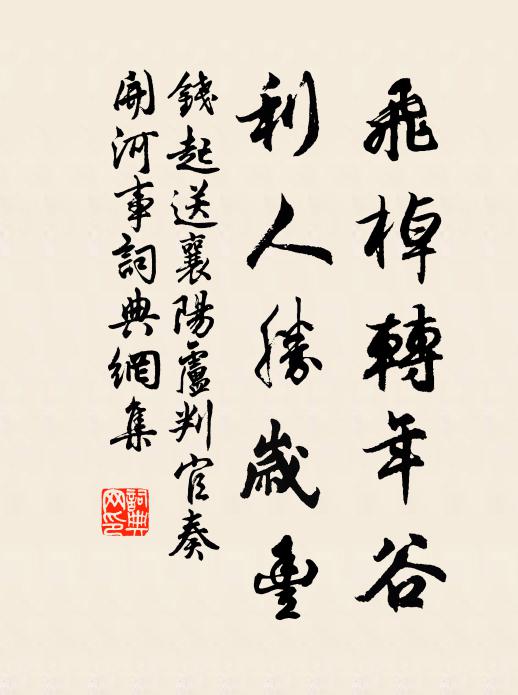 飛棹轉年谷
利人勝歲豐
錢起送襄陽盧判官奏
開河事詞典網集
詞典
网印